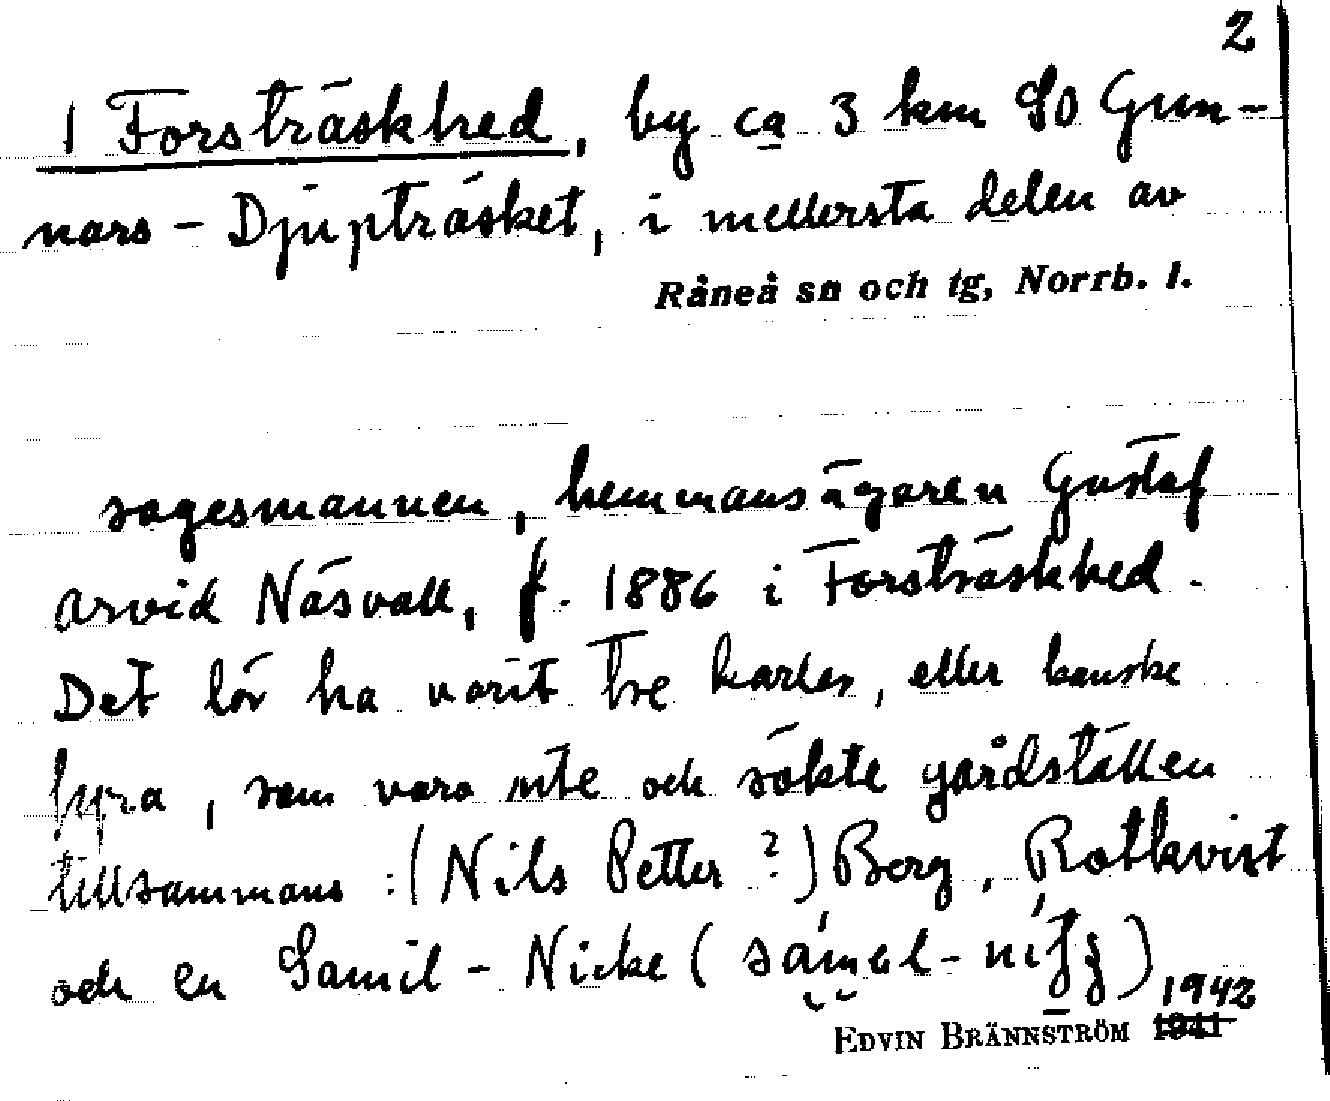 2
1 Forsträskhed, by ca 3 km SO Gun-
nars-Djupträsket, i mellersta delen av
Råneå sn och tg, Norrb. l.
sagesmannen, hemmansägaren Gustaf
Arvid Näsvall, f. 1886 i Forsträskhed.
Det lör ha varit tre karlar, eller kanske
fyra, som vara ute och sökte gårdställen
tillsammans: (Nils Petter?) Berg, Rotkvist
och en Samil-Nicke (
) 1942
EDVIN BRÄNNSTRÖM 1941